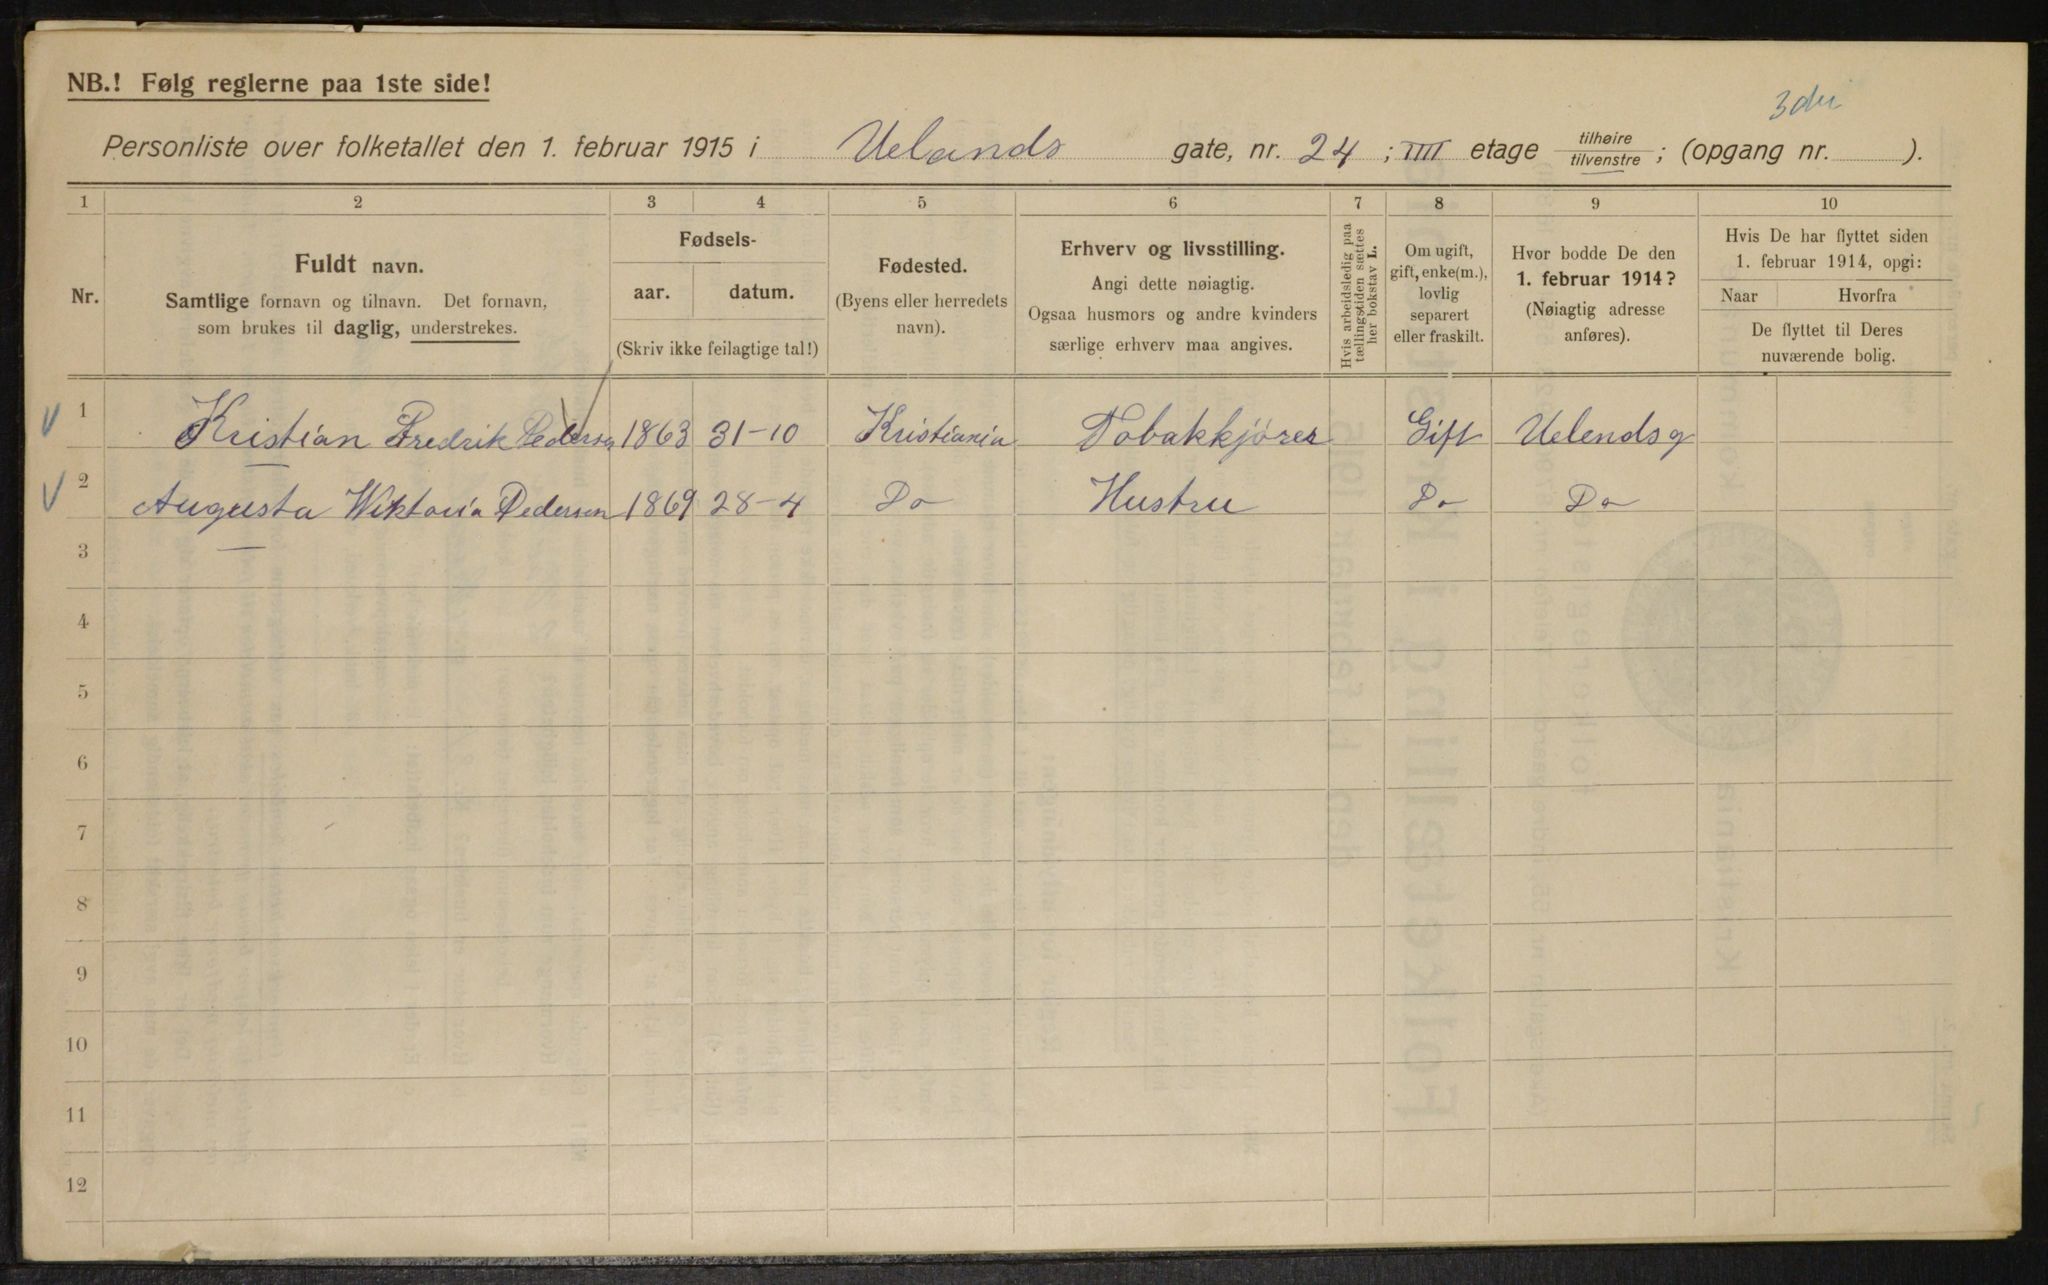 NB.! Følg reglerne paa 1ste side!
Personliste over folketallet den 1. februar 1915 i Uelands gate, nr. 24 ; IIII etage tilhøire/tilvenstre ; (opgang nr. ).
1 2 3 4 5 6 7 8 9 10
Nr.
Fuldt navn.
Samtlige fornavn og tilnavn. Det fornavn,
som brukes til daglig, understrekes.
Fødsels-
aar. datum.
(Skriv ikke feilagtige tal!)
Fødested.
(Byens eller herredets
navn).
Erhverv og livsstilling.
Angi dette nøiagtig.
Ogsaa husmors og andre kvinders
særlige erhverv maa angives.
Hvis arbeidsledig paa
tællingstiden sættes
her bokstav L.
Om ugift,
gift, enke(m.),
lovlig
separert
eller fraskilt.
Hvor bodde De den
1. februar 1914?
(Nøiagtig adresse
anføres).
Hvis De har flyttet siden
1. februar 1914, opgi:
Naar Hvorfra
De flyttet til Deres
nuværende bolig.
1 Kristian Fredrik Pedersen 1863 31-10 Kristiania Tobakkjører Gift Uelendsg
2 Augusta Wiktoria Pedersen 1869 28-4 Do Hustru Do Do
3
4
5
6
7
8
9
10
11
12